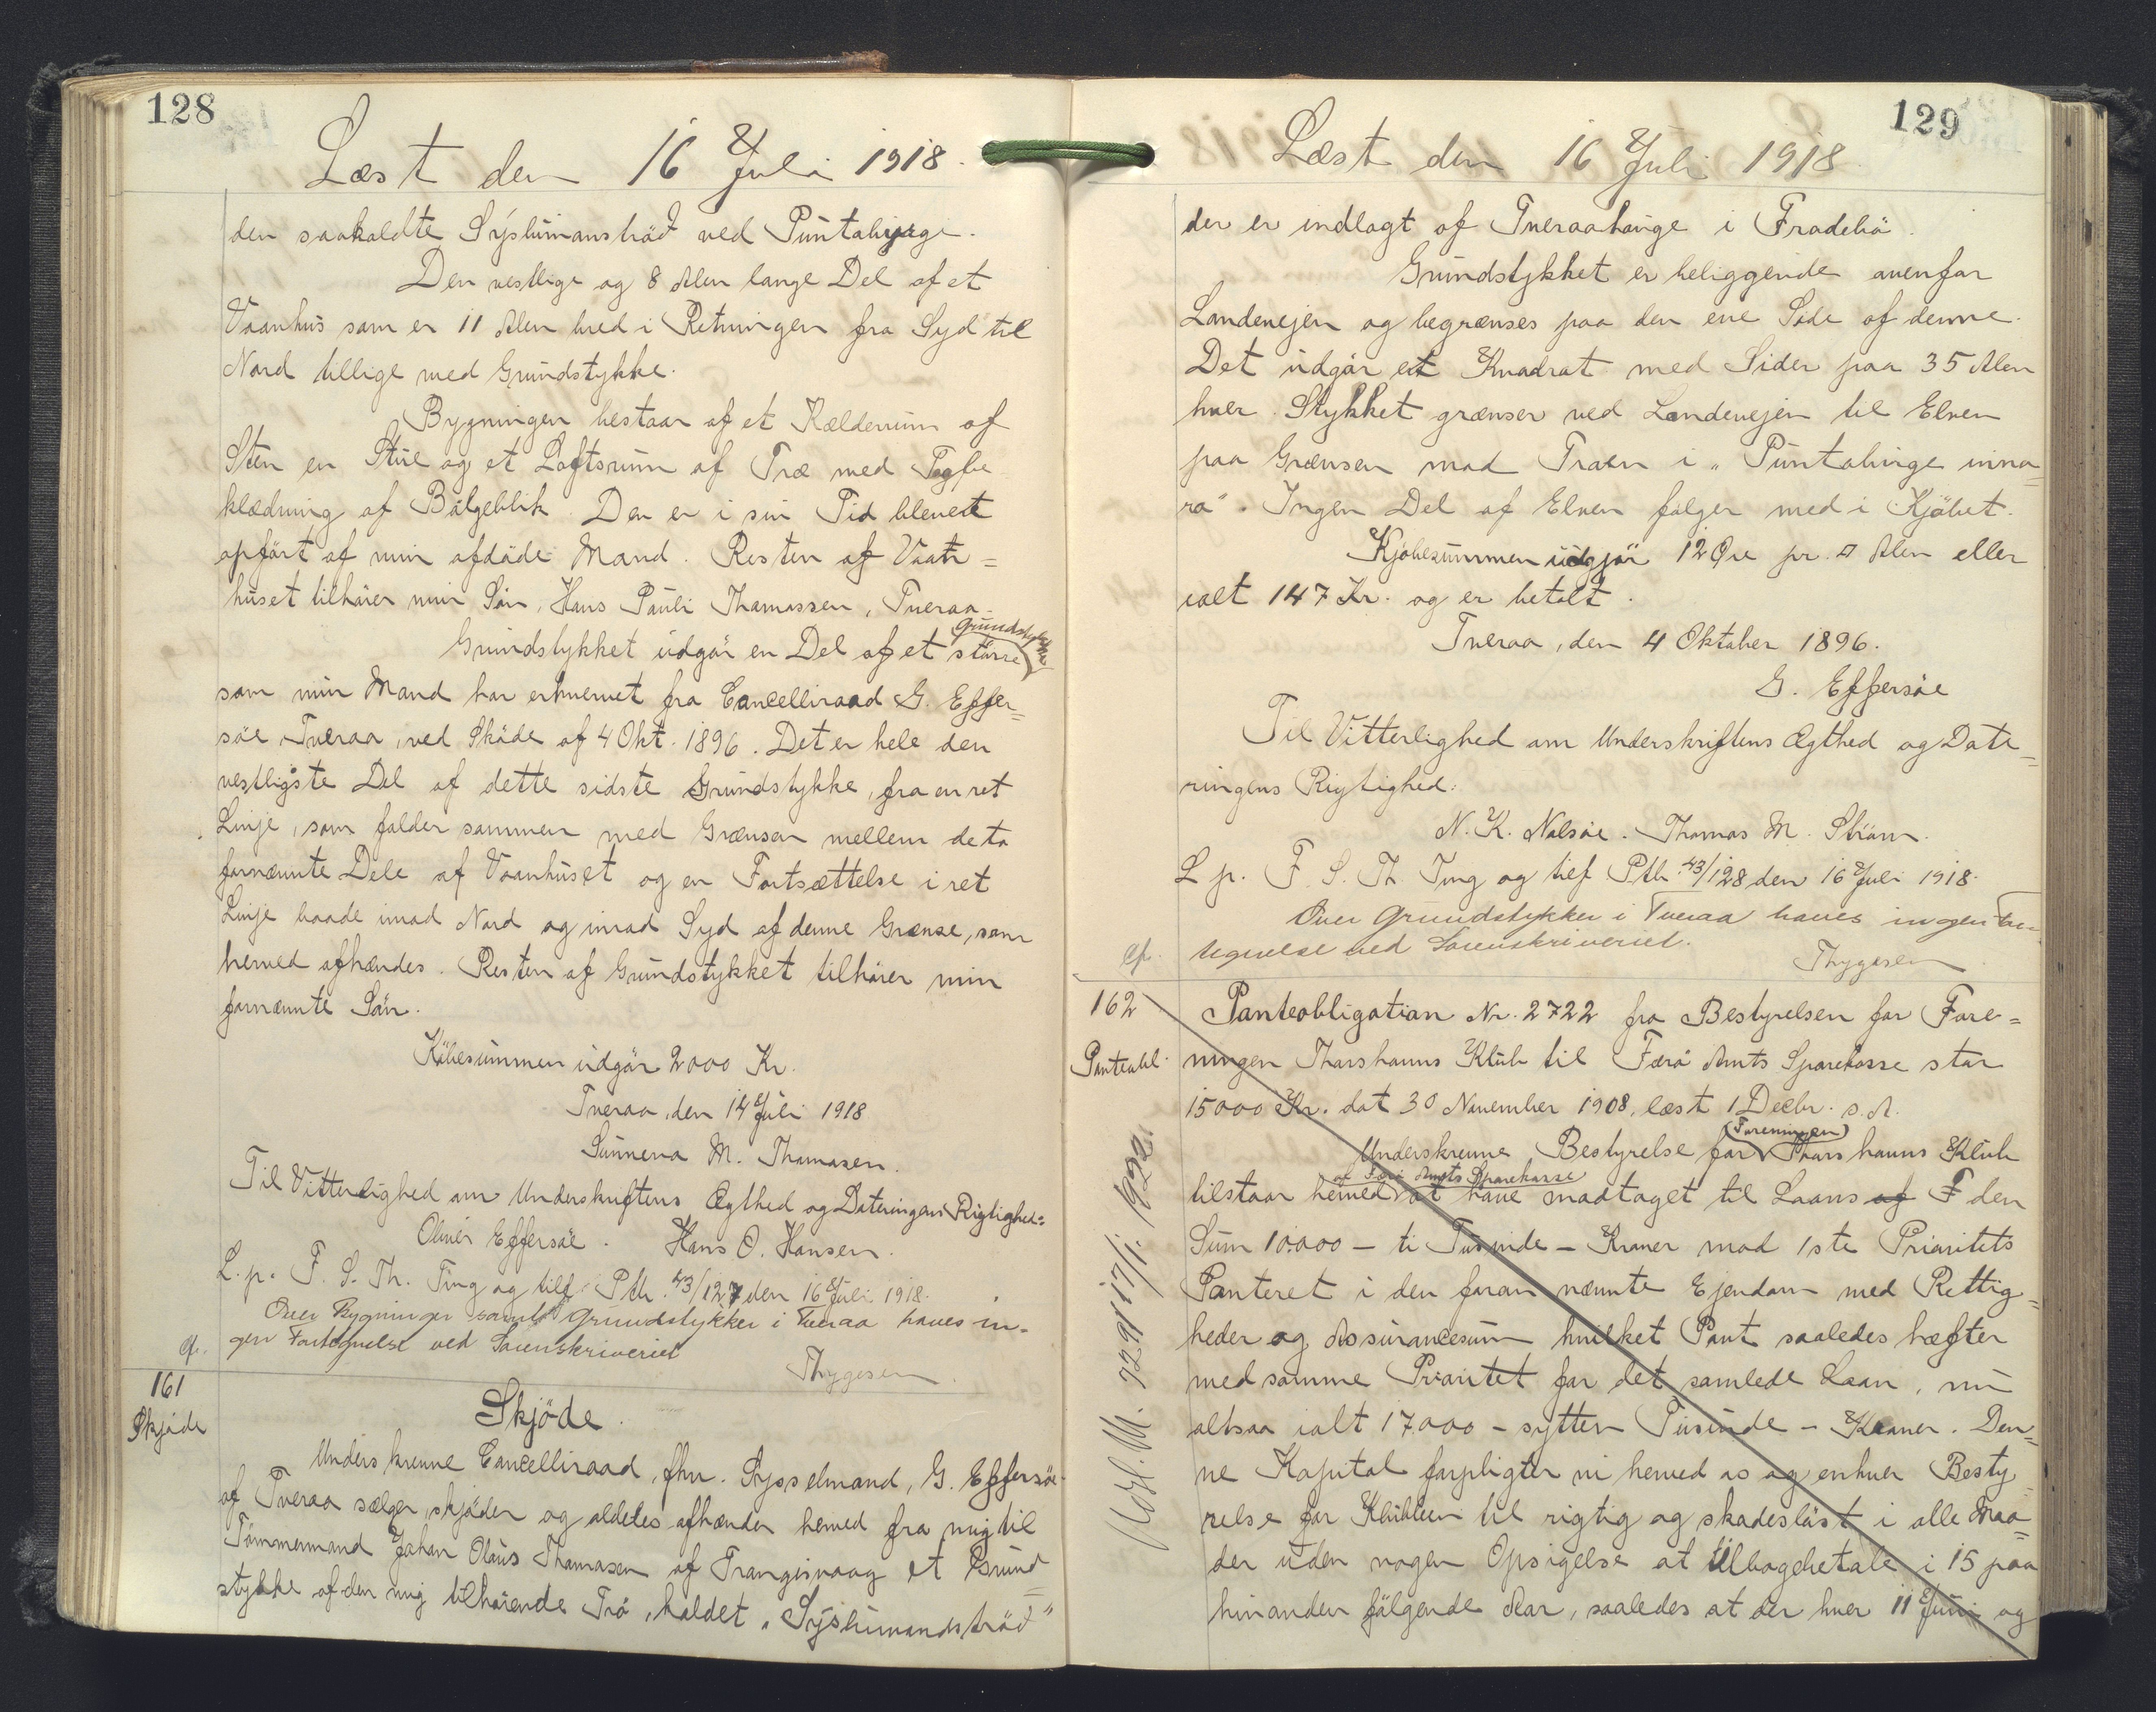 128
Læst den 16 Juli 1918.
den saakaldte Sýslumanströð ved Puntabyrgi.
Den vestlige og 8 Alen lange Del af et
Vaanhus som er 11 Alen bred i Retningen fra Syd til
Nord tillige med Grundstykke.
Bygningen bestaar af et Kælderrum af
Sten en Stue og et Loftsrum af Træ med Tagbe
klædning af Bølgeblik. Den er i sin Tid blevet
opført af min afdøde Mand. Resten af Vaan=
huset tilhører min Søn, Hans Pauli Thomassen, Tveraa.
Grundstykket
Grundstykket udgør en Del af et større
som min Mand har erhvervet fra Cancelliraad G. Effer=
søe, Tveraa, ved Skøde af 4 Okt. 1896. Det er hele den
vestligste Del af dette sidste Grundstykke, fra en ret
Linje, som falder sammen med Grænsen mellem de to
fornævnte Dele af Vaanhuset og en Fortsættelse i ret
Linje baade imod Nord og imod Syd af denne Grænse, som
herved afhændes. Resten af Grundstykket tilhører min
fornævnte Søn.
Købesummen udgør 2000 Kr.
Tveraa, den 14 Juli 1918
Sunneva M. Thomasen.
Til Vitterlighed om Underskriftens Ægthed og Dateringens Rigtighed:
Oliver Effersøe. Hans O. Hansen.
L. p. F. S. Th. Ting og tilf. Ptb. 43/127 den 16 Juli 1918.
Over Bygninger samt Grundstykker i Tveraa haves in=
cf. gen Fortegnelse ved Sorenskriveriet
Thygesen.
161
Skjøde
Skjöde.
Underskrevne Cancelliraad, fhv. Sysselmand, G. Effersøe
af Tveraa sælger, skjøder og aldeles afhænder herved fra mig til
Tømmermand Johan Olaus Thomasen af Trangisvaag et Grund=
stykke af den mig tilhørende Trø, kaldet "Sýslumandströð"
129
Læst den 16 Juli 1918
der er indlagt af Tveraahauge i Frodebø.
Grundstykket er beliggende ovenfor
Landevejen og begrænses paa den ene Side af denne.
Det udgør et Kvadrat med Sider paa 35 Alen
hver. Stykket grænser ved Landevejen til Elven
paa Grænsen mod Traen i "Puntabinge inna
ra". Ingen Del af Elven følger med i Kjøbet.
Kjøbesummen udgjør 12 Øre pr. □ Alen eller
ialt 147 Kr. og er betalt.
Tveraa, den 4 Oktober 1896.
G. Effersøe
Til Vitterlighed om Underskriftens Ægthed og Date=
ringens Rigtighed:
N. K. Nolsøe. Thomas M. Strøm.
L p. F. S. Th. Ting og tilf Ptb. 43/128 den 16 Juli 1918.
Over Grundstykker i Tveraa haves ingen For=
cf. tegnelse ved Sorenskriveriet.
Thygesen
162
Panteobl.
Panteobligation Nr. 2722 fra Bestyrelsen for Fore=
ningen Thorshavns Klub til Færø Amts Sparekasse stor
15000 Kr. dat 30 November 1908, læst 1 Decbr. s. A.
Foreningen
Underskrevne Bestyrelse for Thorshavns Klub
af Færø Amts Sparekasse
tilstaar herved at have modtaget til Laans af F den
Sum 10.000 - ti Tusinde - Kroner mod 1ste Prioritets
Panteret i den foran nævnte Ejendom med Rettig=
heder og Assurancesum hvilket Pant saaledes hæfter
med samme Prioritet for det samlede Laan, nu
altsaa ialt 17.000 - sytten Tusinde - Kroner. Den=
ne Kapital forpligter vi herved os og enhver Besty=
relse for Klubben til rigtig og skadesløst i alle Maa=
der uden nogen Opsigelse at tilbagebetale i 15 paa
hinanden følgende Aar, saaledes at der hver 11 Juni og
Udsl. M. 7291 17/1. 1922.